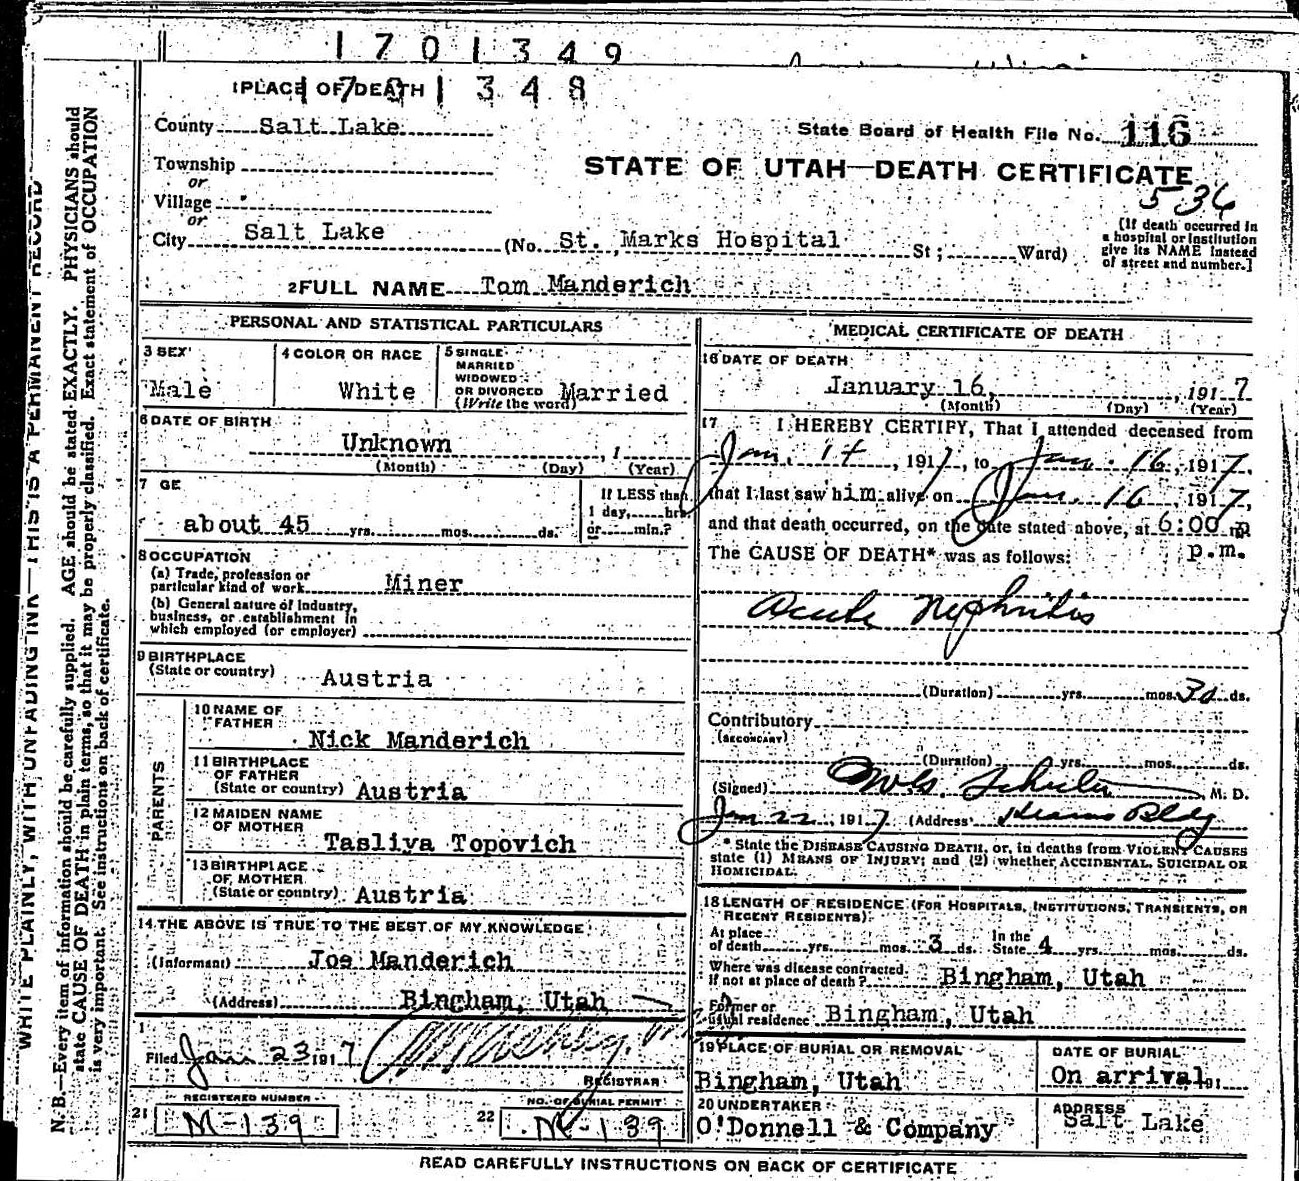 1701349
1 PLACE OF DEATH 1701348
County Salt Lake
State Board of Health File No. 116
Township
or
STATE OF UTAH—DEATH CERTIFICATE
536
Village
or
City Salt Lake (No. St. Marks Hospital St; Ward)
[If death occurred in
a hospital or institution
give its NAME instead
of street and number.]
2 FULL NAME Tom Manderich
PERSONAL AND STATISTICAL PARTICULARS
3 SEX
Male
4 COLOR OR RACE
White
5 SINGLE
MARRIED
WIDOWED
OR DIVORCED
(Write the word)
Married
6 DATE OF BIRTH
Unknown , 1
(Month) (Day) (Year)
7 GE
about 45 yrs. mos. ds.
If LESS than
1 day, hrs.
or min.?
8 OCCUPATION
(a) Trade, profession or
particular kind of work Miner
(b) General nature of industry,
business, or establishment in
which employed (or employer)
9 BIRTHPLACE
(State or country) Austria
PARENTS
10 NAME OF
FATHER
Nick Manderich
11 BIRTHPLACE
OF FATHER
(State or country) Austria
12 MAIDEN NAME
OF MOTHER
Tasliya Topovich
13 BIRTHPLACE
OF MOTHER
(State or country) Austria
14 THE ABOVE IS TRUE TO THE BEST OF MY KNOWLEDGE
(Informant) Joe Manderich
(Address) Bingham, Utah
1
Filed Jan 23 1917
REGISTRAR
REGISTERED NUMBER
21 M-139
NO. OF BURIAL PERMIT
22 M-139
MEDICAL CERTIFICATE OF DEATH
16 DATE OF DEATH
January 16, , 1917
(Month) (Day) (Year)
17 I HEREBY CERTIFY, That I attended deceased from
Jan. 14 , 1917, to Jan. 16, 1917,
that I last saw him alive on Jan. 16, 1917,
and that death occurred, on the date stated above, at 6:00 m
p.m.
The CAUSE OF DEATH* was as follows:
Acute Nephritis
(Duration) yrs. mos. 3d ds.
Contributory
(SECONDARY)
(Duration) yrs. mos. ds.
(Signed) M. D.
Jan 22, 1917 (Address) Kearns Bldg
* State the DISEASE CAUSING DEATH, or, in deaths from VIOLENT CAUSES
state (1) MEANS OF INJURY; and (2) whether ACCIDENTAL, SUICIDAL OR
HOMICIDAL.
18 LENGTH OF RESIDENCE (FOR HOSPITALS, INSTITUTIONS, TRANSIENTS, OR
RECENT RESIDENTS)
At place
of death yrs. mos. 3 ds. In the
State 4 yrs. mos. ds.
Where was disease contracted
if not at place of death? Bingham, Utah
Former or
usual residence Bingham, Utah
19 PLACE OF BURIAL OR REMOVAL
Bingham, Utah
DATE OF BURIAL
On arrival, 191
20 UNDERTAKER
O'Donnell & Company
ADDRESS
Salt Lake
READ CAREFULLY INSTRUCTIONS ON BACK OF CERTIFICATE
WRITE PLAINLY, WITH UNFADING INK—THIS IS A PERMANENT RECORD
N. B.—Every item of information should be carefully supplied. AGE should be stated EXACTLY. PHYSICIANS should
state CAUSE OF DEATH in plain terms, so that it may be properly classified. Exact statement of OCCUPATION
is very important. See instructions on back of certificate.